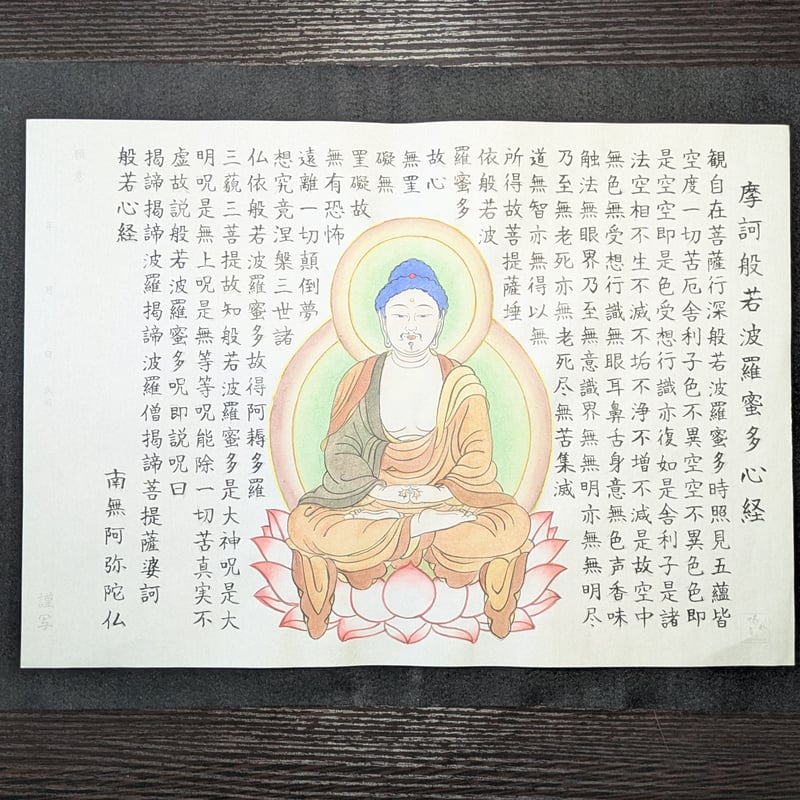 摩訶般若波羅蜜多心経
観自在菩薩行深般若波羅蜜多時照見五蘊皆
空度一切苦厄舎利子色不異空空不異色色即
是空空即是色受想行識亦復如是舎利子是諸
法空相不生不滅不垢不浄不増不減是故空中
無色無受想行識無眼耳鼻舌身意無色声香味
触法無眼界乃至無意識界無無明亦無無明尽
乃至無老死亦無老死尽無苦集滅
道無智亦無得以無
所得故菩提薩埵
依般若波
羅蜜多
故心
無罣
礙無
罣礙故
無有恐怖
遠離一切顛倒夢
想究竟涅槃三世諸
仏依般若波羅蜜多故得阿耨多羅
三藐三菩提故知般若波羅蜜多是大神呪是大
明呪是無上呪是無等等呪能除一切苦真実不
虚故説般若波羅蜜多呪即説呪曰
揭諦揭諦波羅揭諦波羅僧揭諦菩提薩婆訶
般若心経
南無阿弥陀仏
願意
年 月 日
謹写